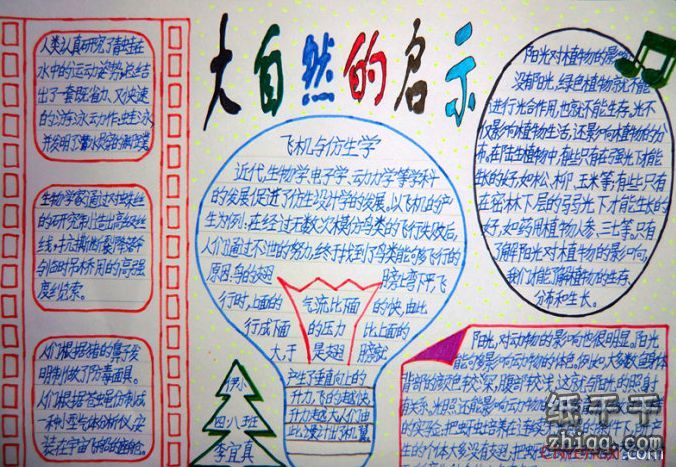 大自然的启示
人类认真研究了青蛙在
水中的运动姿势,总结
出了一套既省力、又快速
的游泳动作,蛙泳
并发明了潜水员的脚蹼
生物学家通过对蛛丝
的研究制出高级丝
线,抗撕断裂降落伞
与临时吊桥用的高强
度缆索。
人们根据猪的鼻子发
明制做了防毒面具。
人们根据苍蝇仿制成
一种小型气体分析仪,安
装在宇宙飞船的座舱。
飞机与仿生学
近代,生物学,电子学,动力学等学科
的发展促进了仿生设计学的发展,以飞机的产
生为例:在经过无数次模仿鸟类的飞行失败后,
人们通过不泄的努力,终于找到了鸟类能够飞行的
原因:鸟的翅膀上弯下平,飞
行时,上面的气流比下面的快,由此
行成下面的压力比上面的
大,于是翅膀就
产生了垂直向上的
升力,飞的越快,
升力越大,人们由
此设计出飞机翼
伊小
四八班
李宜真
阳光对植物的影响
没有阳光,绿色植物就不能
进行光合作用,也就不能生存。光不
仅影响植物生活,还影响植物的分
布,在陆生植物中,有些只有在强光下才能
生长的好,如松、柳、玉米等,有些只有
在密林下层的弱光下才能生长的
好,如药用植物人参、三七等,只有
了解阳光对植物的影响,
我们才能了解植物的生存、
分布和生长。
阳光,对动物的影响也很明显,阳光
能够影响动物的体色。例如,大多数鱼身体
背部的颜色较深,腹部较浅,这就与阳光的照射
有关系。光照还能影响动物的
的实验,把蚜虫培养在连续
生的个体大多没有翅,把
纸干干
zhiqg.com